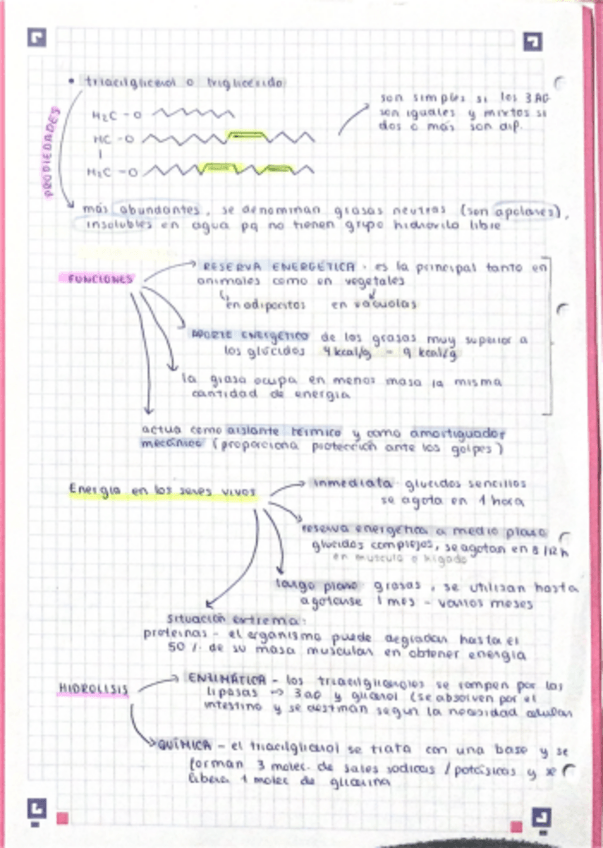 • triacilglicerol o triglicérido
son simples si los 3 AG
son iguales y mixtos si
dos o más son dif.
PROPIEDADES
H₂C - O
HC - O
H₂C - O
más abundantes, se denominan grasas neutras (son apolares),
insolubles en agua pq no tienen grupo hidroxilo libre
FUNCIONES
RESERVA ENERGÉTICA - es la principal tanto en
animales como en vegetales
en adipocitos en vacuolas
APORTE ENERGÉTICO de las grasas muy superior a
los glúcidos 4 kcal/g - 9 kcal/g
la grasa ocupa en menos masa la misma
cantidad de energía
actua como aislante térmico y como amortiguador
mecánico (proporciona protección ante los golpes)
Energía en los seres vivos
inmediata glúcidos sencillos
se agota en 1 hora
reserva energética a medio plazo
glúcidos complejos, se agotan en 8/12 h
en músculo o hígado
largo plazo grasas, se utilizan hasta
agotarse 1 mes - varios meses
situación extrema:
proteínas - el organismo puede degradar hasta el
50 % de su masa muscular en obtener energía
HIDRÓLISIS
ENZIMÁTICA - los triacilgliceroles se rompen por las
lipasas → 3 ag y glicerol (se absorven por el
intestino y se destinan según la necesidad celular
QUÍMICA - el triacilglicerol se trata con una base y se
forman 3 molec. de sales sódicas / potásicas y se
libera 1 molec de glicerina